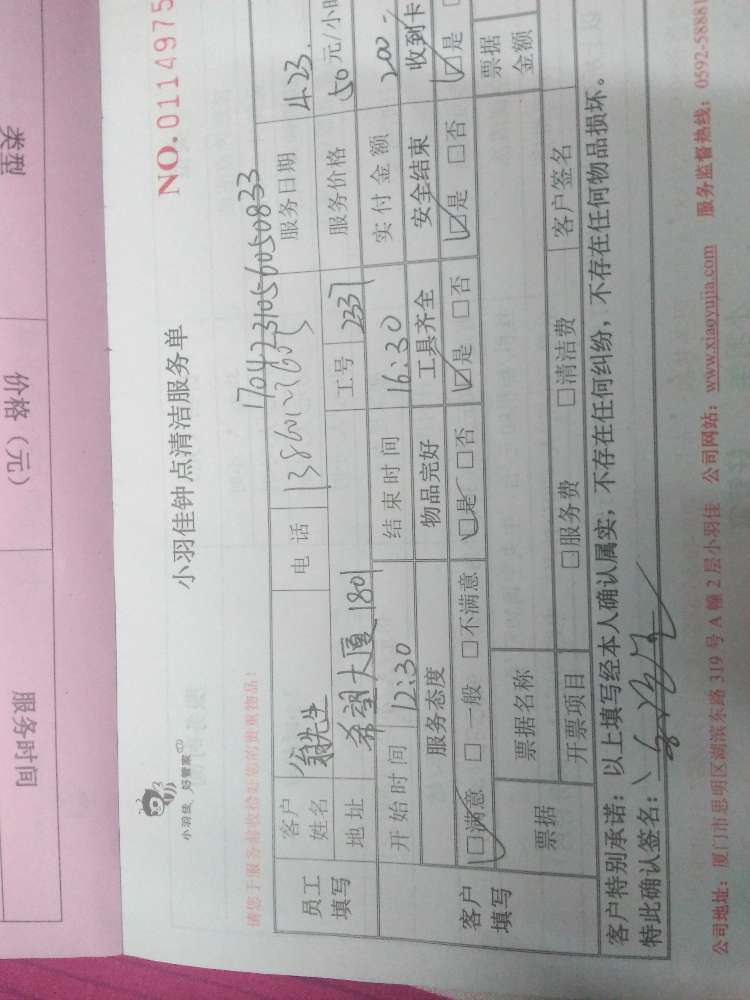 类型
价格（元）
服务时间
小羽佳 好管家
小羽佳钟点清洁服务单
NO.0114975
请您于服务前收拾好您的贵重物品！
1704231056050833
员工填写
客户姓名 翁先生 电话 服务日期 4.23.
地址 希望大厦1801 工号 2337 服务价格 50元/小时
客户填写
开始时间 12:30 结束时间 16:30 实付金额 200-
服务态度 物品完好 工具齐全 安全结束 收到卡
☑满意 □一般 □不满意 ☑是 □否 ☑是 □否 ☑是 □否 ☑是
票据 票据名称 票据金额
开票项目 □服务费 □清洁费 客户签名
客户特别承诺：以上填写经本人确认属实，不存在任何纠纷，不存在任何物品损坏。
特此确认签名：
公司地址：厦门市思明区湖滨东路319号A幢2层小羽佳 公司网站：www.xiaoyujia.com 服务监督热线：0592-58881